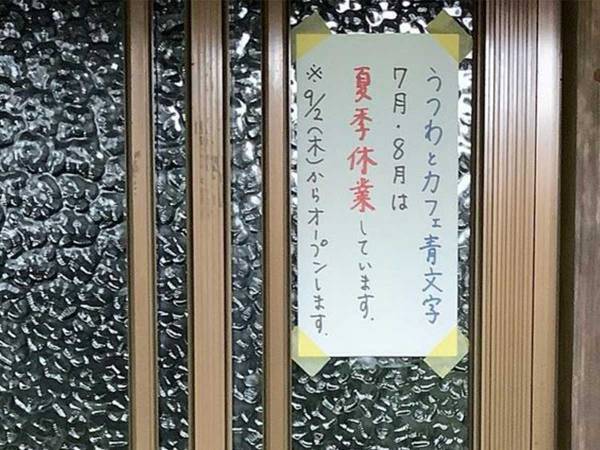 うつわとカフェ青文字
7月・8月は
夏季休業しています.
※9/2(木)からオープンします.